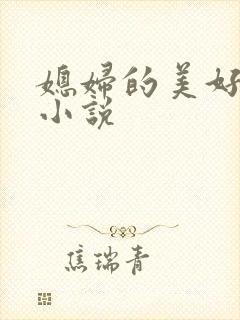 媳婦的美好
小說
焦瑞青